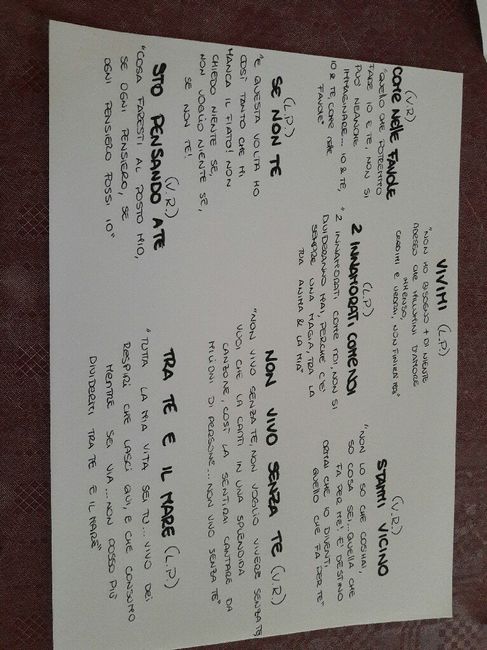 VIVIMI (L.P)
"NON HO BISOGNO + DI NIENTE
ADESSO CHE M'ILLUMINI D'AMORE
IMMENSO,
STAMMI VICINO
(V.R.)
"NON LO SO CHE COS'HAI,
SO COSA SEI... QUELLA CHE
FA PER ME! E' DESTINO
ORMAI CHE IO DIVENTI,
QUELLO CHE FA PER TE"
COME NELLE FAVOLE
(V.R)
"QUELLO CHE POTREMMO
FARE IO E TE, NON SI
PUO' NEANCHE
IMMAGINARE... IO & TE,
IO & TE, COME NELLE
FAVOLE"
2 INNAMORATI COME NOI
(L.P)
"2 INNAMORATI COME NOI, NON SI
DIVIDERANNO MAI, PERCHE' C'E'
SEMPRE UNA MAGIA, TRA LA
TUA ANIMA & LA MIA"
SE NON TE
(L.P.)
"E QUESTA VOLTA HO
COSI' TANTO CHE MI
MANCA IL FIATO! NON
CHIEDO NIENTE SE,
NON VOGLIO NIENTE SE,
SE NON TE!
NON VIVO SENZA TE (V.R)
"NON VIVO SENZA TE, NON VOGLIO VIVERE SENZA TE,
VUOI, CHE LA CANTI IN UNA SPLENDIDA
CANZONE, COSI' LA SENTIRAI CANTARE DA
MILIONI DI PERSONE... NON VIVO SENZA TE"
STO PENSANDO A TE
(V.R)
"COSA FARESTI AL POSTO MIO,
SE OGNI PENSIERO, SE
OGNI PENSIERO FOSSI IO"
TRA TE E IL MARE (L.P)
"TUTTA LA MIA VITA SEI TU... VIVO DEI
RESPIRI CHE LASCI QUI, E CHE CONSUMO
MENTRE SEI VIA... NON POSSO PIU'
DIVIDERMI TRA TE E IL MARE"